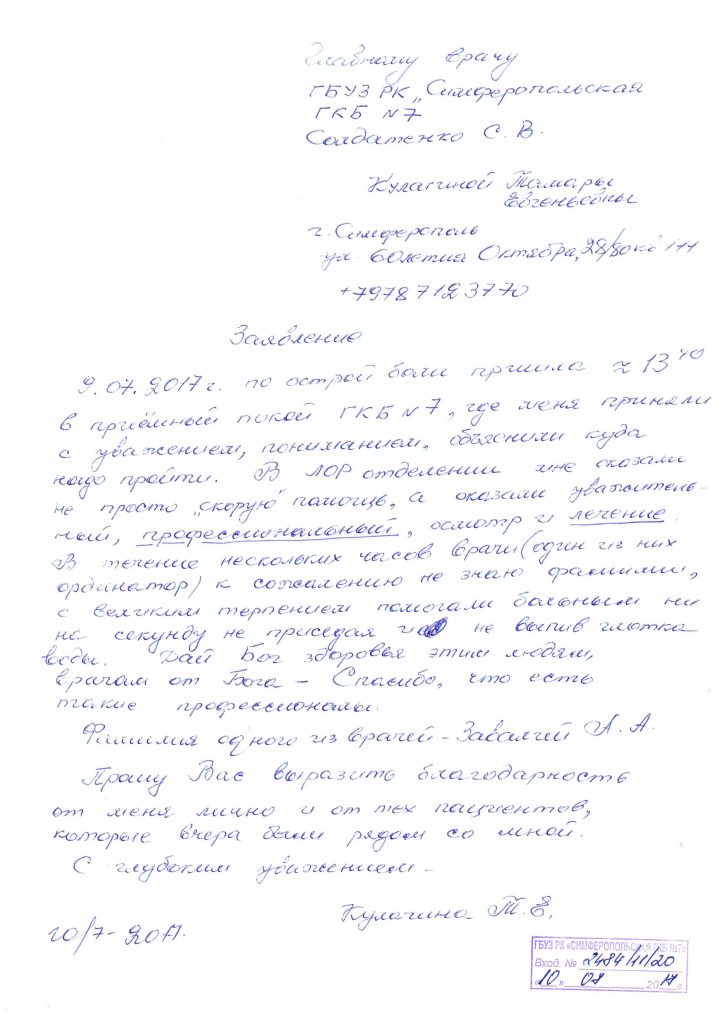 Главному врачу
ГБУЗ РК „Симферопольская
ГКБ N7
Солдатенко С. В.
Кулагиной Тамары
Евгеньевны
г. Симферополь
ул. 60летия Октября, 28/80кв 111
+79787123770
Заявление
9.07.2017г. по острой боли пришла ≈ 13 40
в приёмный покой ГКБ N7, где меня приняли
с уважением, пониманием, объяснили куда
надо пройти. В ЛОР отделении мне оказали
не просто „скорую" помощь, а оказали уважитель-
ный, профессиональный, осмотр и лечение.
В течение нескольких часов врачи (один из них
ординатор) к сожалению не знаю фамилии,
с великим терпением помогали больным ни
на секунду не приседая и не выпив глотка
воды. Дай Бог здоровья этим людям,
врачам от Бога – Спасибо, что есть
такие профессионалы.
Фамилия одного из врачей – А. А.
Прошу Вас выразить благодарность
от меня лично и от тех пациентов,
которые вчера были рядом со мной.
С глубоким уважением –
Кулагина Т. Е.
10/7-2017.
ГБУЗ РК «СИМФЕРОПОЛЬСКАЯ ГКБ №7»
Вход. № 2484/41/20
«10» 07 2017 г.